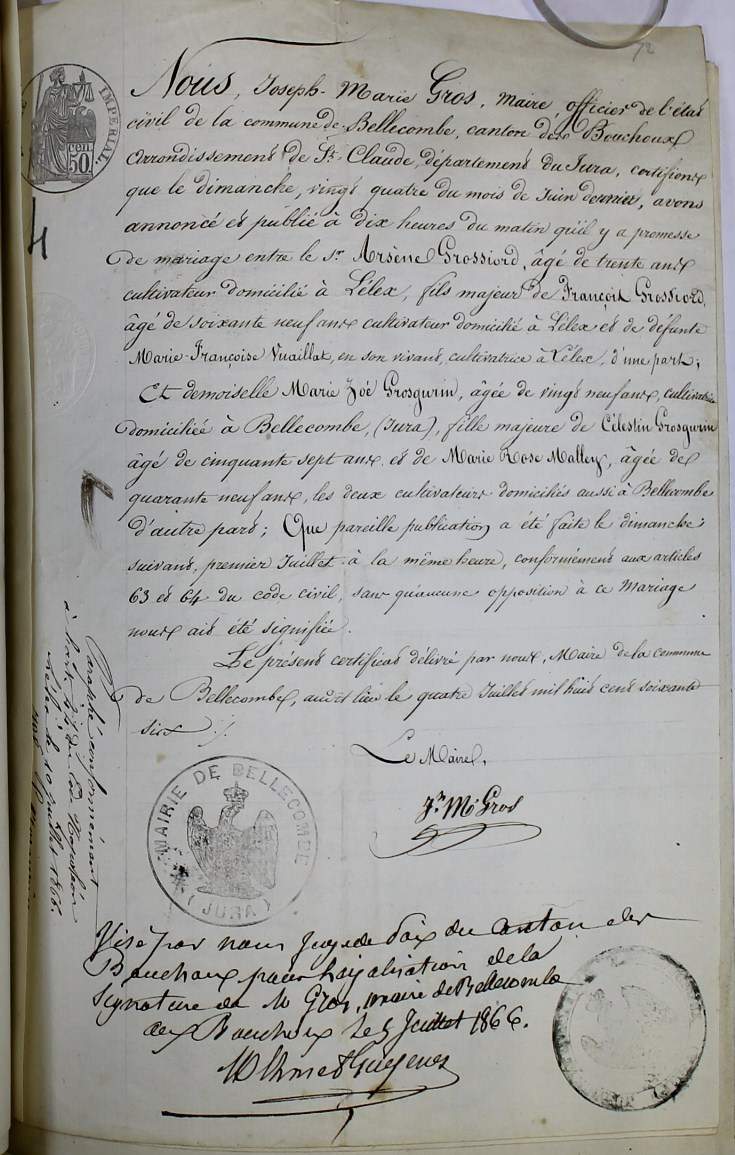 72
IMPERIAL.
50.C
Nous, Joseph-Marie Gros, maire, officier de l'état
civil de la commune de Bellecombe, canton des Bouchoux
arrondissement de St. Claude, département du Jura, certifions
que le dimanche, vingt quatre du mois de Juin dernier, avons
annoncé et publié à dix heures du matin qu'il y a promesse
de mariage entre le sr. Arsène Grossiord, âgé de trente ans
cultivateur domicilié à Lélex, fils majeur de François Grossiord,
âgé de soixante neuf ans cultivateur domicilié à Lélex et de défunte
Marie-Françoise Vuaillat, en son vivant, cultivatrice à Lélex, d'une part;
Et demoiselle Marie Zoé Grosgurin, âgée de vingt neuf ans, cultivatrice
domiciliée à Bellecombe, (Jura), fille majeure de Célestin Grosgurin
âgé de cinquante sept ans, et de Marie Rose Malley, âgée de
quarante neuf ans, les deux cultivateurs domiciliés aussi à Bellecombe
d'autre part; Que pareille publication a été faite le dimanche
suivant, premier Juillet à la même heure, conformément aux articles
63 et 64 du code civil, sans qu'aucune opposition à ce Mariage
nous ait été signifiée.
Le présent certificat délivré par nous, Maire de la commune
de Bellecombe, audit lieu le quatre Juillet mil huit cent soixante
six ./.
Le Maire,
Jh Mie Gros
MAIRIE DE BELLECOMBE
(JURA)
Visé par nous Juge de Paix du canton des
Bouchoux pour légalisation de la
signature de M Gros, maire de Bellecombe
aux Bouchoux le 5 Juillet 1866.
Paraphé conformément
à l'article 44 du Code Napoléon
Lélex le 10 Juillet 1866.